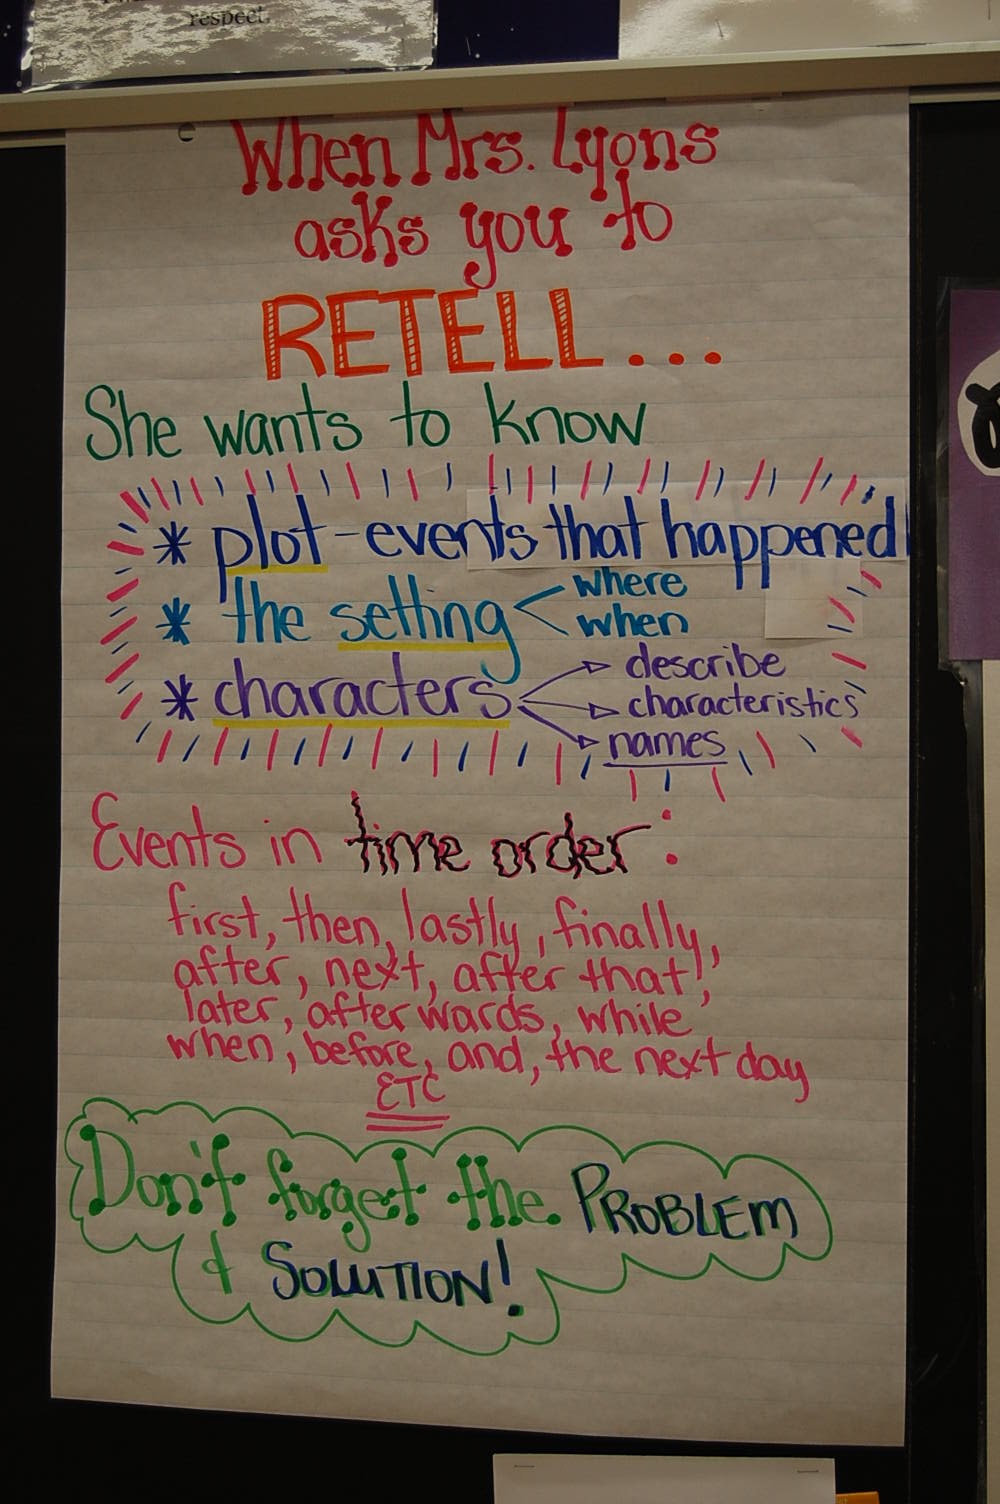 respect.
When Mrs. Lyons
asks you to
RETELL...
She wants to know
* plot - events that happened
* the setting < where
when
* characters describe
characteristics
names
Events in time order:
first, then, lastly, finally,
after, next, after that,
later, afterwards, while
when, before, and, the next day
ETC
Don't forget the PROBLEM
& SOLUTION!